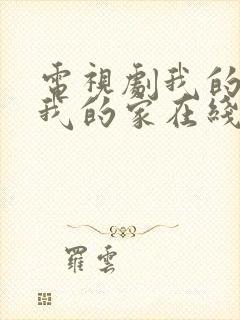 電視劇我的
我的家在綫
羅雲